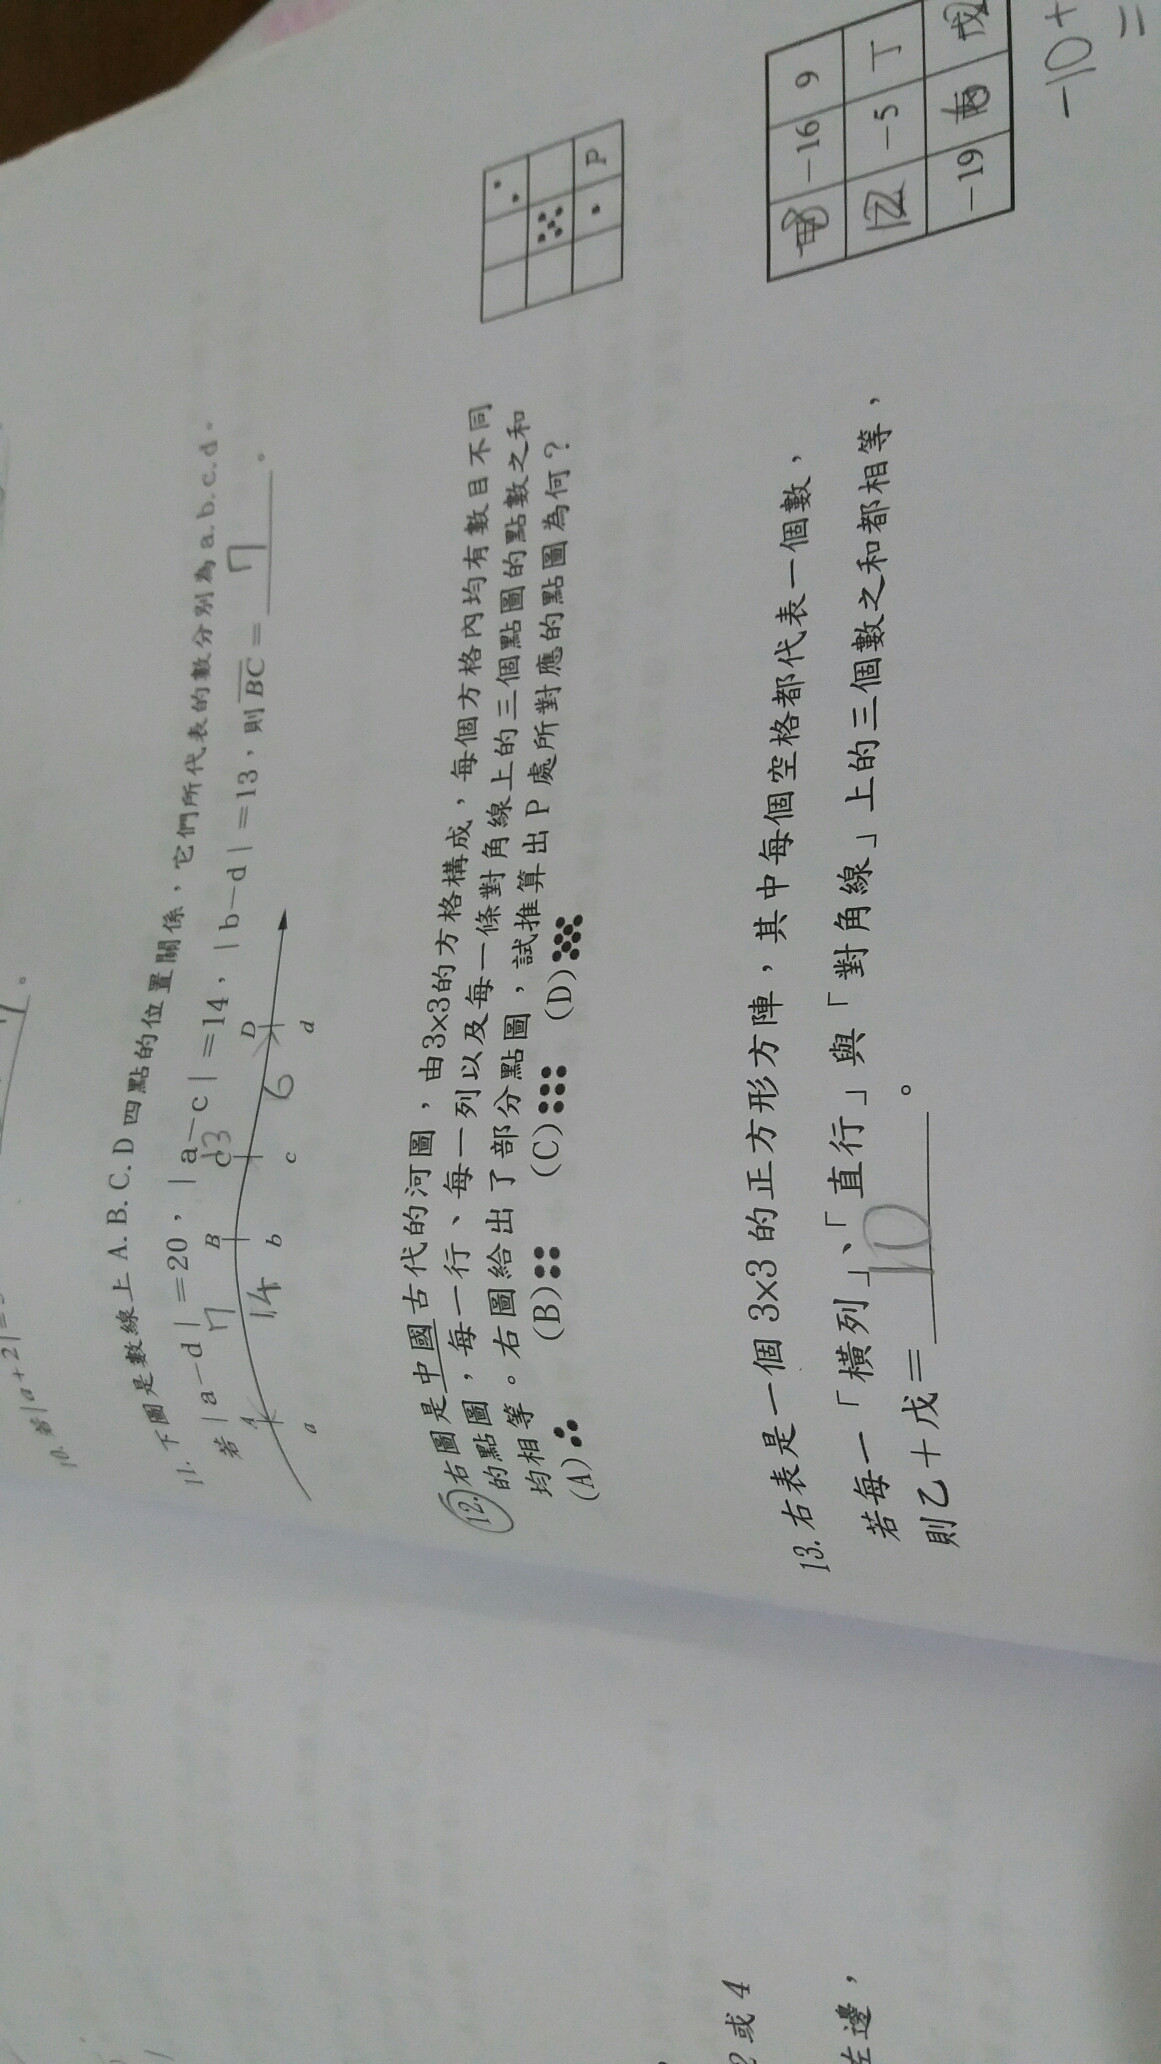 10. 若|a+2|=
11. 下圖是數線上 A. B. C. D 四點的位置關係，它們所代表的數分別為 a. b. c. d。
若 |a－d|＝20，|a－c|＝14，|b－d|＝13，則BC＝ 7 。
7 13
A B C D
14 6
a b c d
12. 右圖是中國古代的河圖，由3×3的方格構成，每個方格內均有數目不同
的點圖，每一行、每一列以及每一條對角線上的三個點圖的點數之和
均相等。右圖給出了部分點圖，試推算出 P 處所對應的點圖為何？
(A) (B) (C) (D)
P
13. 右表是一個 3×3 的正方形方陣，其中每個空格都代表一個數，
若每一「橫列」、「直行」與「對角線」上的三個數之和都相等，
則乙＋戊＝ 10 。
甲 －16 9
乙 －5 丁
－19 丙 戊
-10+
=
2 或 4
左邊，